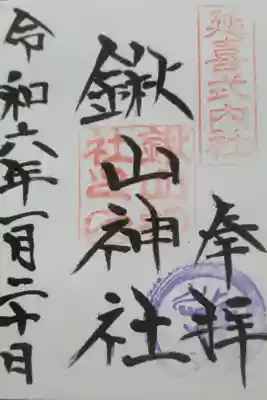 延喜式内社
奉拝
鍬山神社
令和六年一月二十日